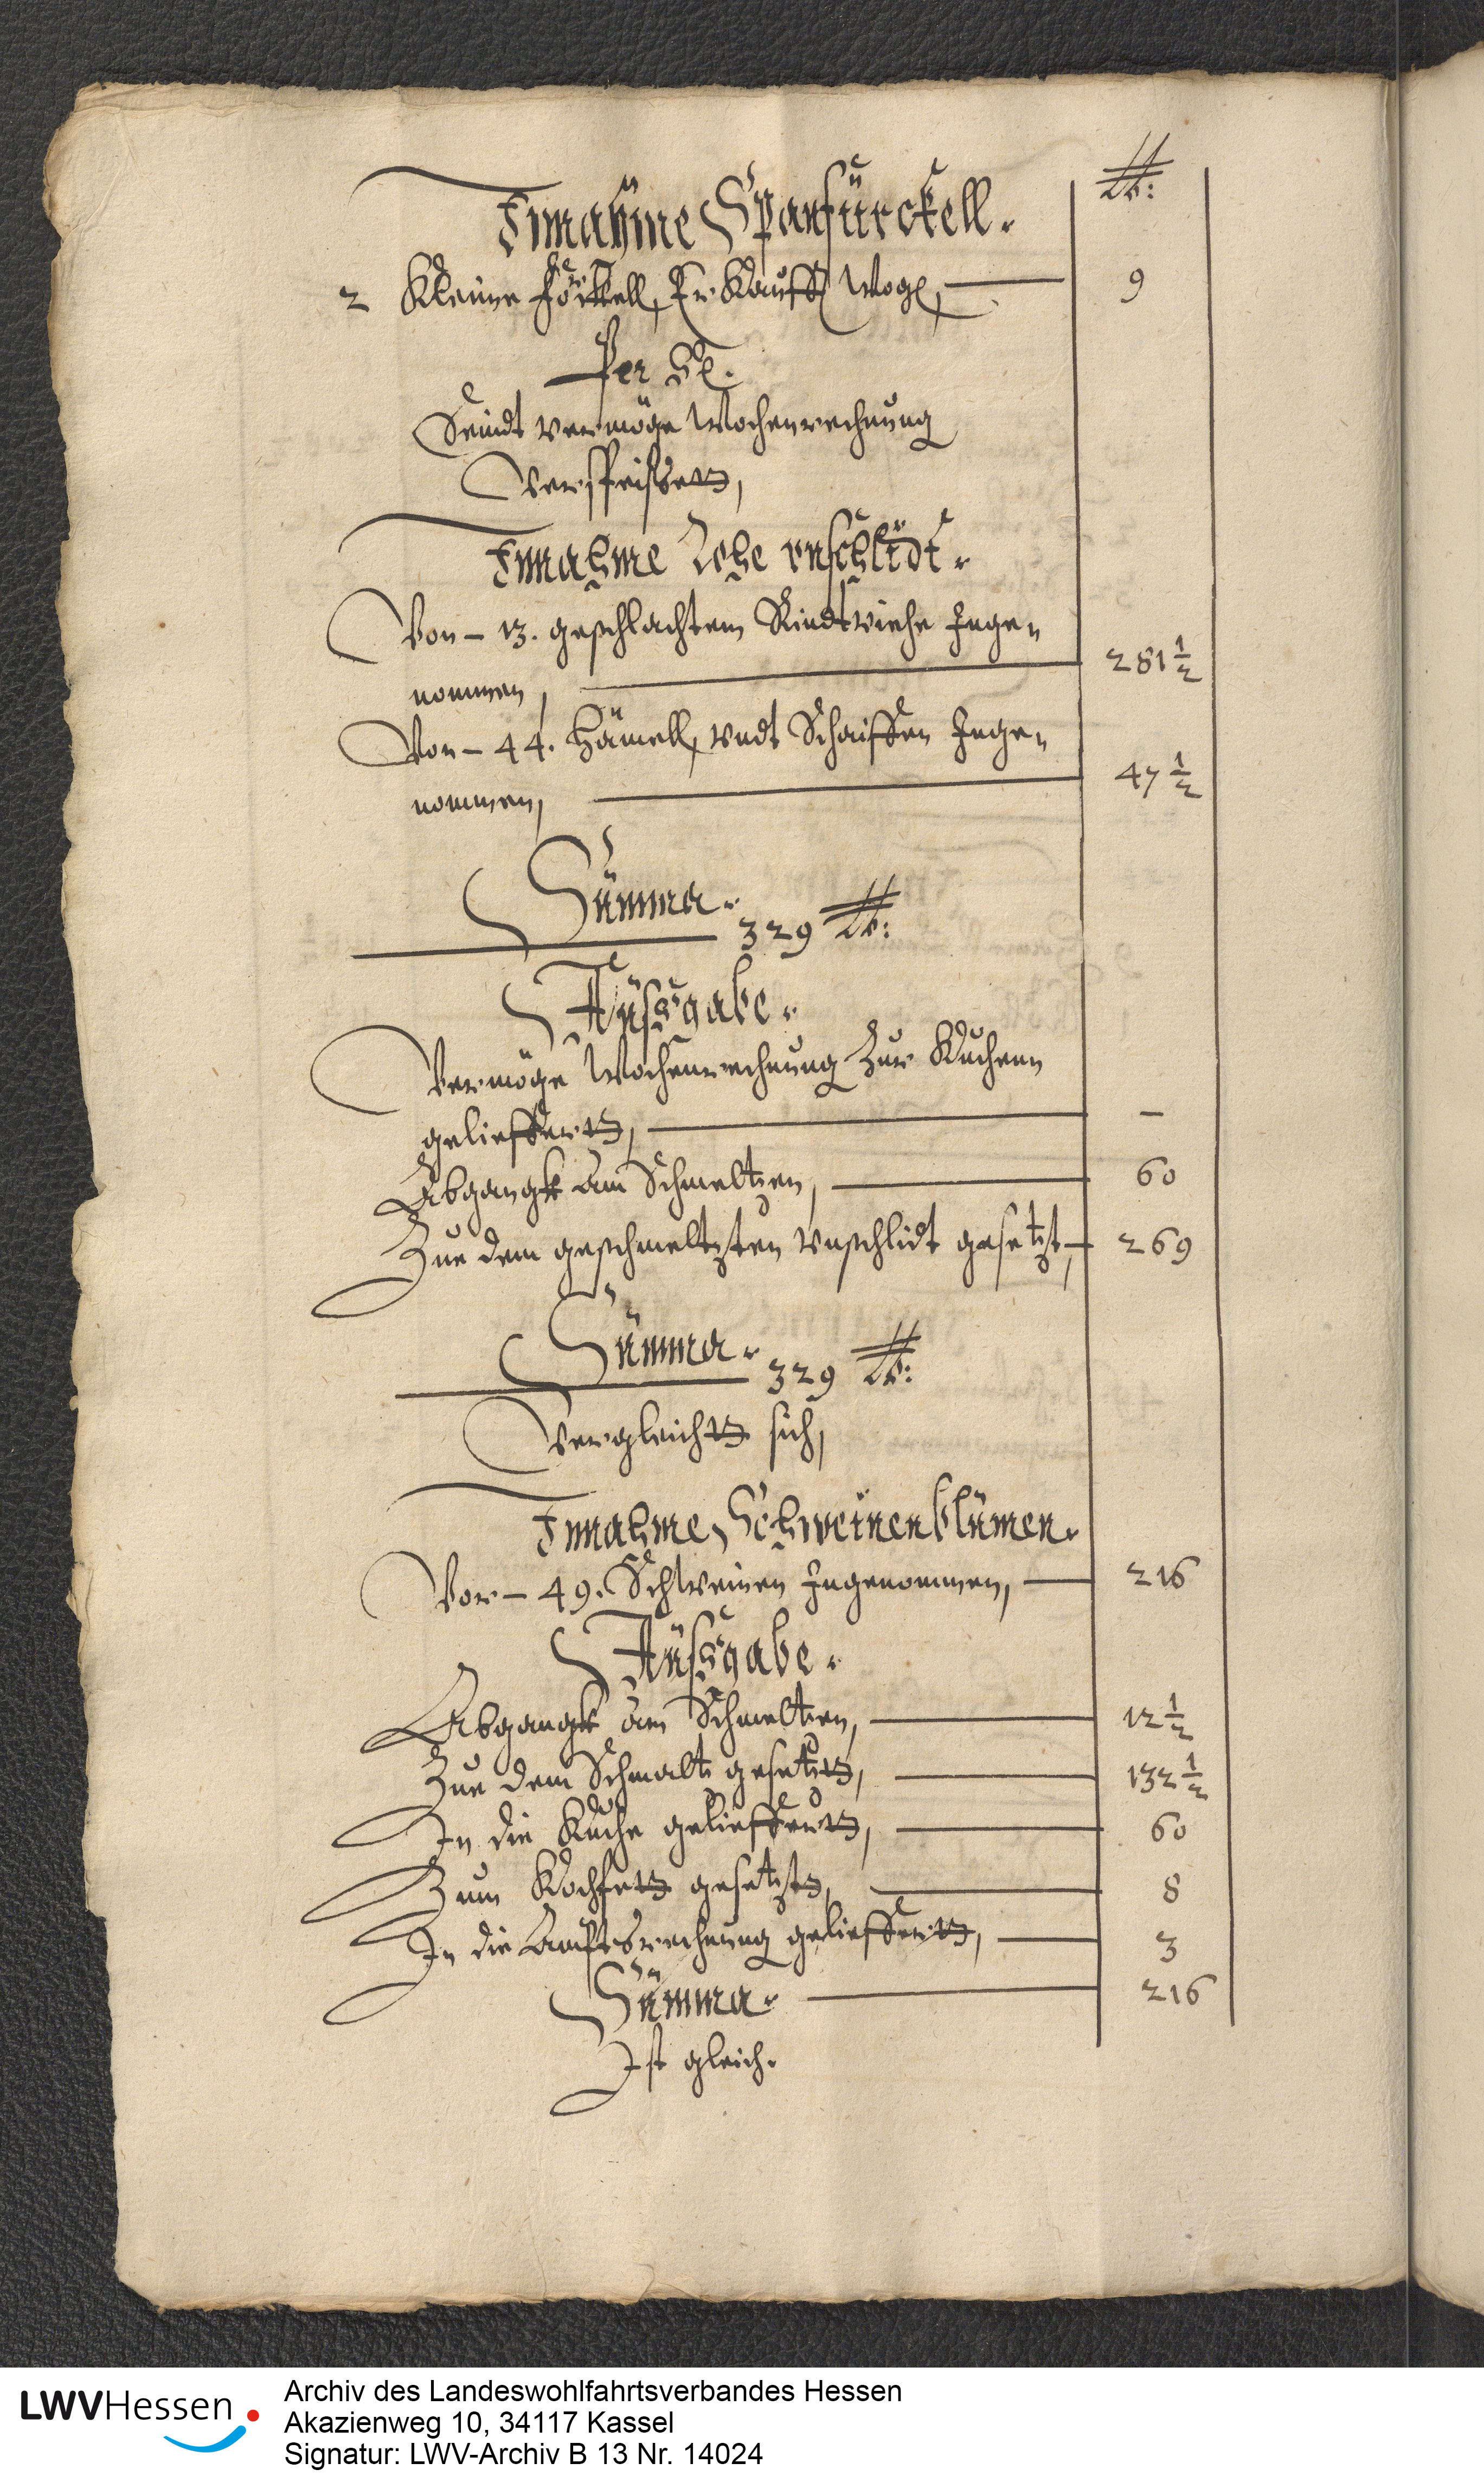 lb:
Innahme Spanfürckell.
2 Kleine förckell, Erkaufft Wog, 9
Per Se.
Seindt vermöge Wochenrechnung
verspeisset,
Innahme Rohe vnschlidt.
Von - 13. geschlachtem Rindtviehe Inge-
nommen, 281 1/2
Von - 44. Hämell, vndt Schaiffen Inge-
nommen, 47 1/2
Summa. 329 lb:
Außgabe.
Vermöge Wochenrechnung Zur Kuchenn
gelieffertt, –
Abgangk am Schmeltzen, 60
Zue dem geschmeltzten vnschlidt gesetzt, 269
Summa. 329 lb:
Vergleichtt sich,
Innahme Schweinenblumen.
Von - 49. Schweinen Ingenommen, 216
Außgabe.
Abgangk am Schmeltzen, 12 1/2
Zue dem Schmaltz gesetzt, 132 1/2
In die Kuche gelieffertt, 60
Zum Kochfett gesetzt, 8
In die Amftsrechnung gelieffertt, 3
Summa. 216
Ist gleich.
LWVHessen
Archiv des Landeswohlfahrtsverbandes Hessen
Akazienweg 10, 34117 Kassel
Signatur: LWV-Archiv B 13 Nr. 14024